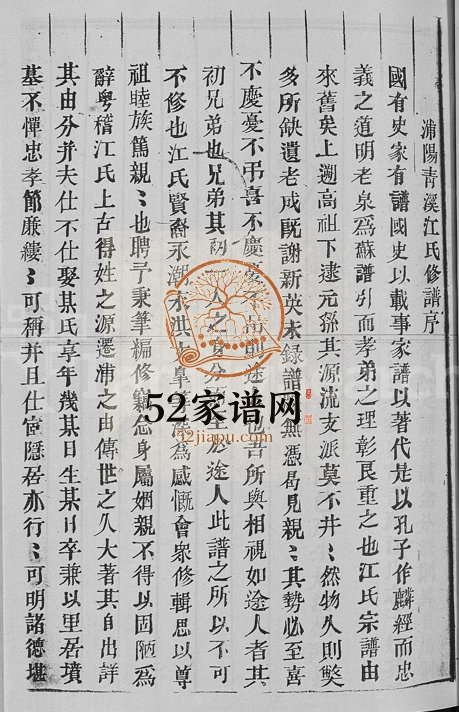 浦陽青溪江氏修譜序
國有史家有譜國史以載事家譜以著代是以孔子作麟經而忠
義之道明老泉爲蘇譜引而孝弟之理彰艮重之也江氏宗譜由
來舊矣上遡高祖下逮元孫其源流支派莫不井〻然物久則獘
多所缺遺老成旣謝新英未錄譜無憑曷見親〻其勢必至喜
不慶憂不弔喜不慶憂不弔則途人也吾所與相視如途人者其
初兄弟也兄弟其初一人之身分至於途人此譜之所以不可
不修也江氏賢裔永潮永洪爲感慨會衆修輯思以尊
祖睦族篤親〻也聘予秉筆編修竊念身屬姻親不得以固陋爲
辭粤稽江氏上古得姓之源遷浦之由傳世之久大著其自出詳
其由分并夫仕不仕娶某氏享年幾某日生某日卒兼以里居墳
墓不憚忠孝節廉縷〻可稱并且仕宦隱居亦行〻可明諸德堪
52家谱网
52jiapu.com